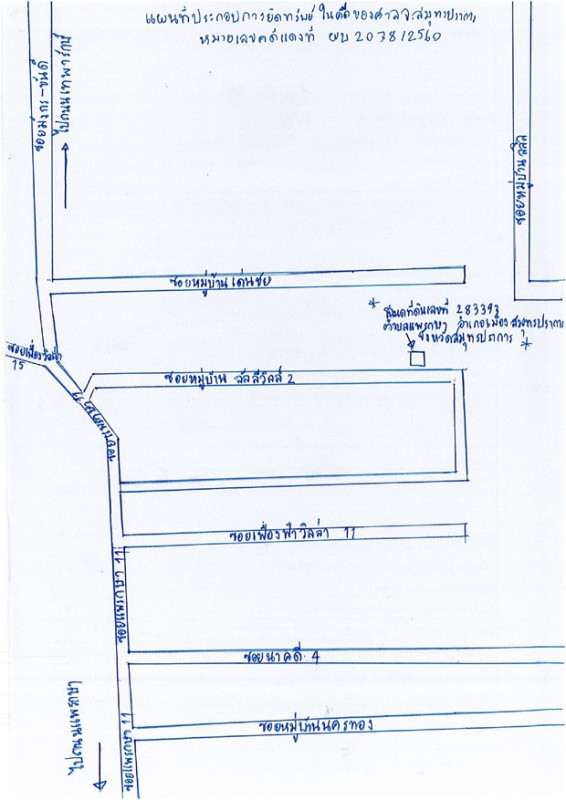 แผนที่ประกอบการยึดทรัพย์ ในคดี ของศาลจ.สมุทรปราการ
หมายเลขคดีแดงที่ ผบ 20781/2560
ซอยมังกร-ขันดี
ไปถนนเทพารักษ์
ซอยหมู่บ้าน ลลิล
ซอยหมู่บ้านเด่นชัย
* โฉนดที่ดินเลขที่ 283393
ตำบลแพรกษา อำเภอเมืองสมุทรปราการ
จังหวัดสมุทรปราการ *
ซอยเฟื่องฟ้าวิลล่า
15
ซอยหมู่บ้าน ลัลลีวิลล์ 2
ซอยแพรกษา 11
ซอยเฟื่องฟ้าวิลล่า 11
ซอยแพรกษา 11
ซอยนาคดี 4
ไปถนนแพรกษา
ซอยแพรกษา 11
ซอยหมู่บ้านนครทอง